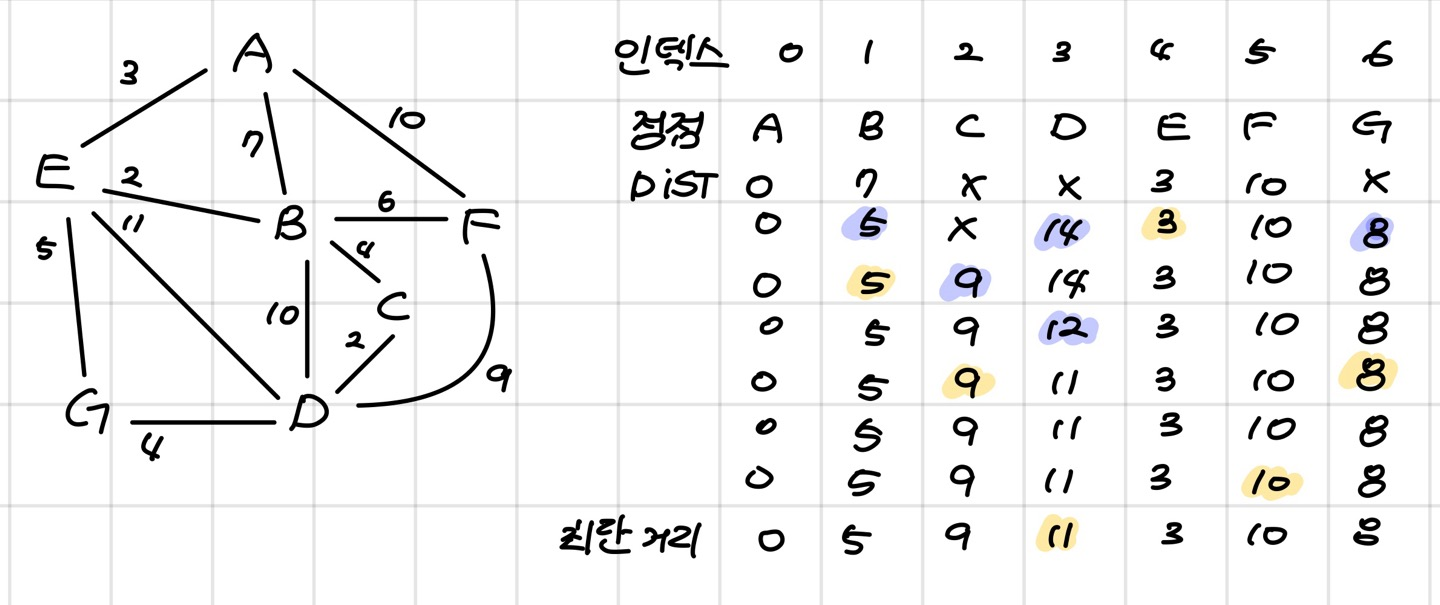 A
3
7
10
E
2
11
B
6
F
5
4
C
10
2
9
G
D
4
인덱스 0 1 2 3 4 5 6
정점 A B C D E F G
DiST 0 7 X X 3 10 X
0 5 X 14 3 10 8
0 5 9 14 3 10 8
0 5 9 12 3 10 8
0 5 9 11 3 10 8
0 5 9 11 3 10 8
0 5 9 11 3 10 8
최단 거리 0 5 9 11 3 10 8